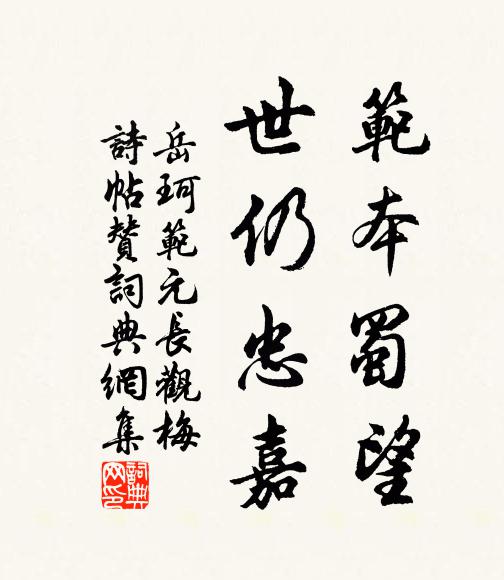 範本蜀望
世仍忠嘉
岳珂範元長觀梅
詩帖贊詞典網集
詞典网印